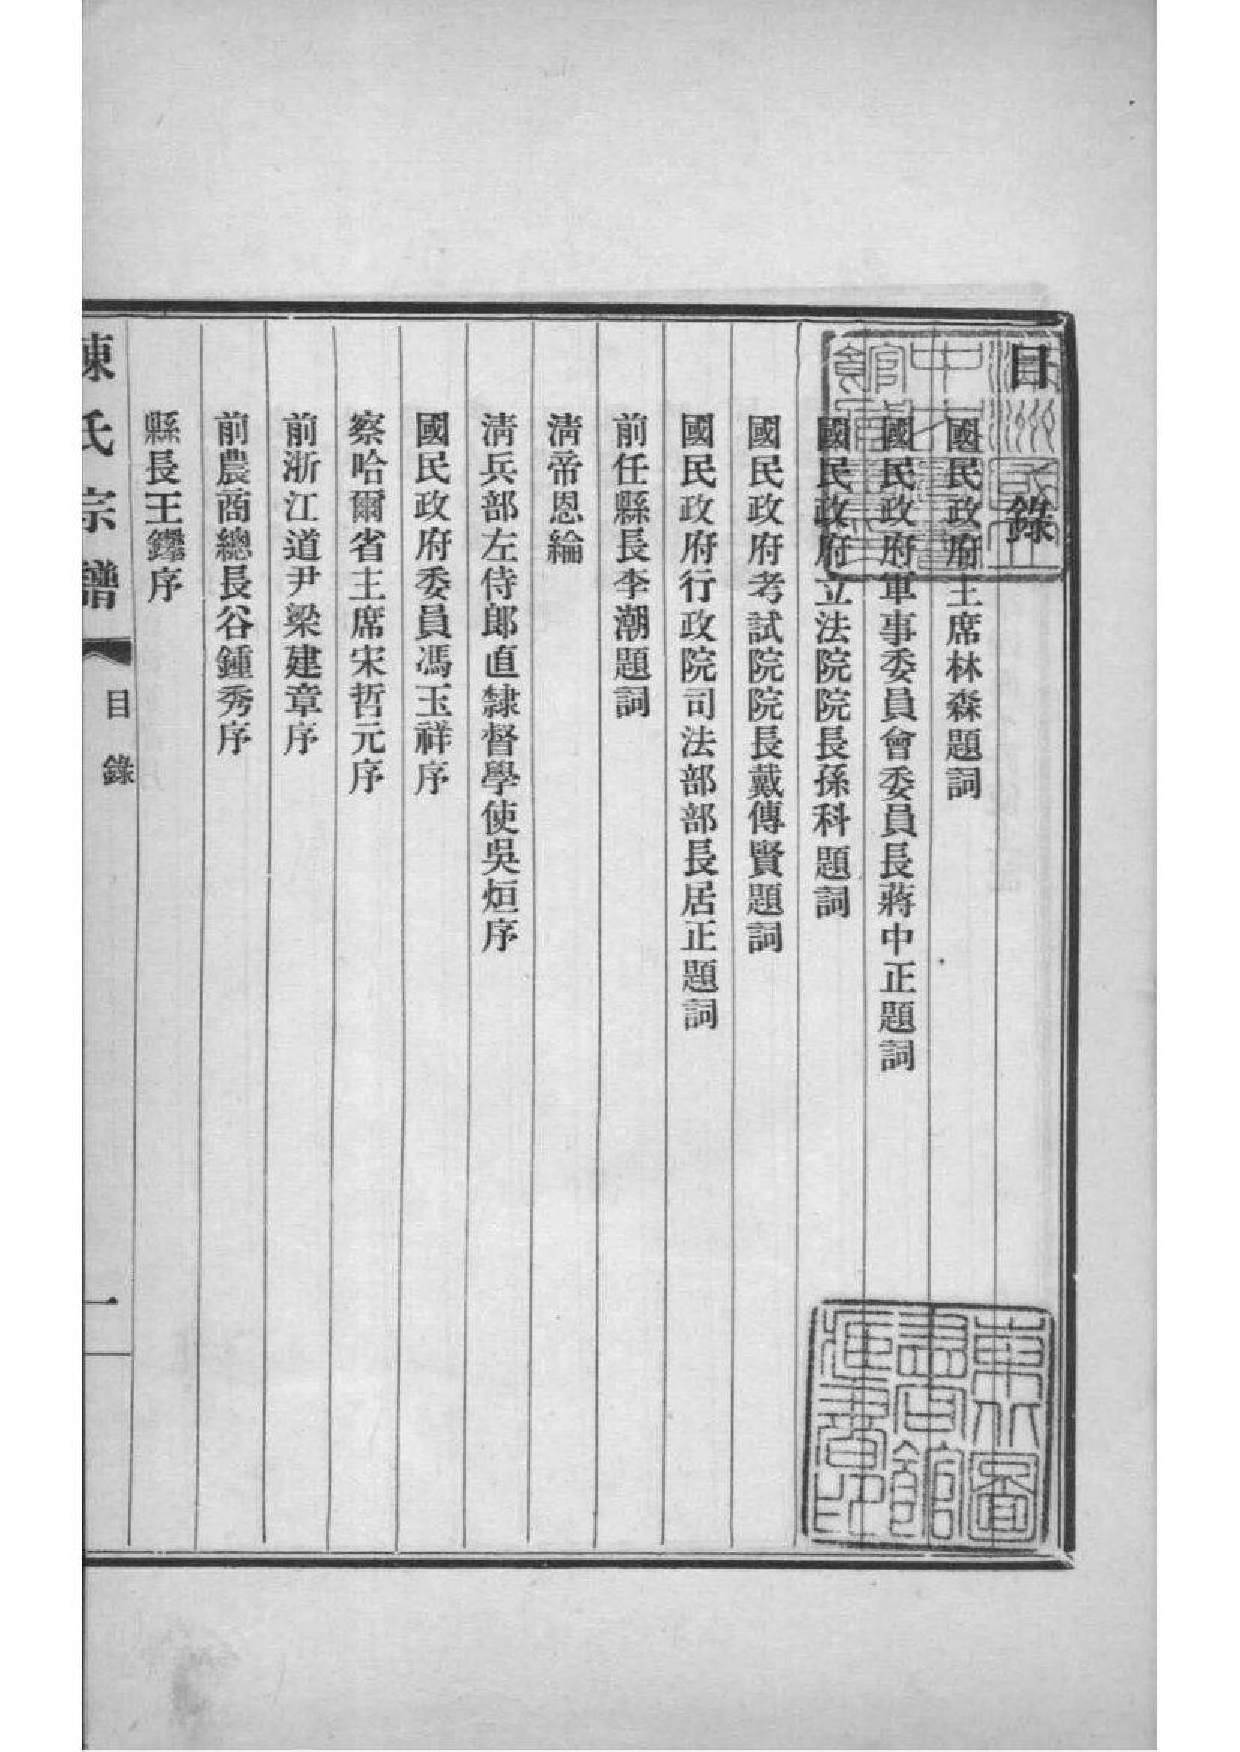 目錄
國民政府主席林森題詞
國民政府軍事委員會委員長蔣中正題詞
國民政府立法院院長孫科題詞
國民政府考試院院長戴傳賢題詞
國民政府行政院司法部部長居正題詞
前任縣長李潮題詞
清帝恩綸
清兵部左侍郎直隸督學使吳烜序
國民政府委員馮玉祥序
察哈爾省主席宋哲元序
前浙江道尹梁建章序
前農商總長谷鍾秀序
縣長王鑻序
氏宗譜
目錄
一